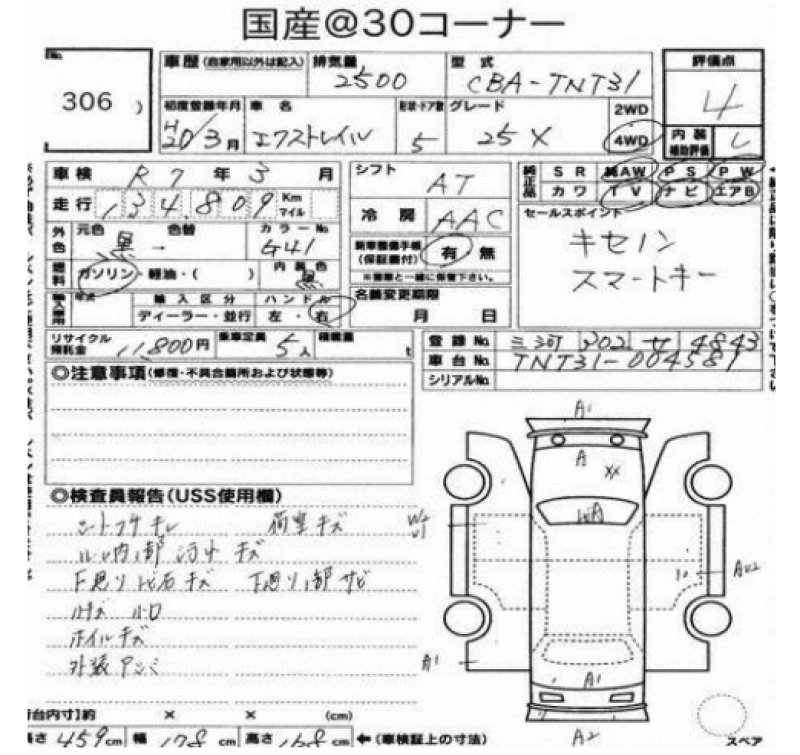 国産@30コーナー
No.
306
車歴 (自家用以外は記入)
排気量
2500
型式
CBA-TNT31
評価点
4
初度登録年月
H20/3月
車名
エクストレイル
形状・ドア数
5
グレード
25X
2WD
4WD
内装
補助評価
車検 R7年3月
走行 134,809 Km マイル
シフト
AT
冷房 AAC
純正品
SR 純AW PS PW
カワ TV ナビ エアB
外色
元色 黒 → 色替
カラーNo
G41
新車整備手帳
(保証書付)
有 無
※車輌と一緒に保管下さい。
セールスポイント
キセノン
スマートキー
燃料
ガソリン・軽油・( )
内装色
黒
輸入車用
年式
輸入区分
ディーラー・並行
ハンドル
左・右
名義変更期限
月 日
リサイクル
預託金
11,800円
乗車定員
5人
積載量
t
登録No. 三河 302 サ 4843
車台No. TNT31-004581
シリアルNo.
◎注意事項(修復・不具合箇所および状態等)
◎検査員報告(USS使用欄)
シートコゲ キレ 荷室キズ
内部 汚レ キズ
下廻り 飛石キズ 下廻り部サビ
ホイルキズ
A1
A
XX
A
A1
A1
A2
[台内寸]約 × × (cm)
長さ 459cm 幅 178cm 高さ 168cm ←(車検証上の寸法)
スペア